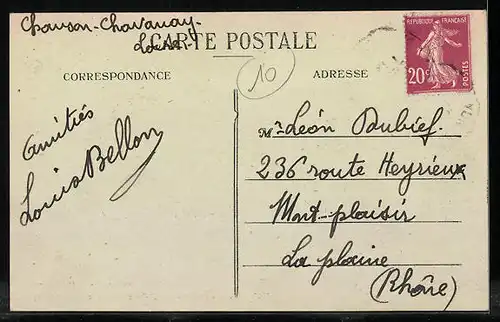 Chanson-Chavanay-
Loire.
CARTE POSTALE
CORRESPONDANCE
ADRESSE
10
REPUBLIQUE FRANÇAISE
20c
POSTES
Amitiés
Louis Bellon
Mr Léon Dubief.
236 route Heyrieux
Mont-plaisir
La plaine
(Rhône)